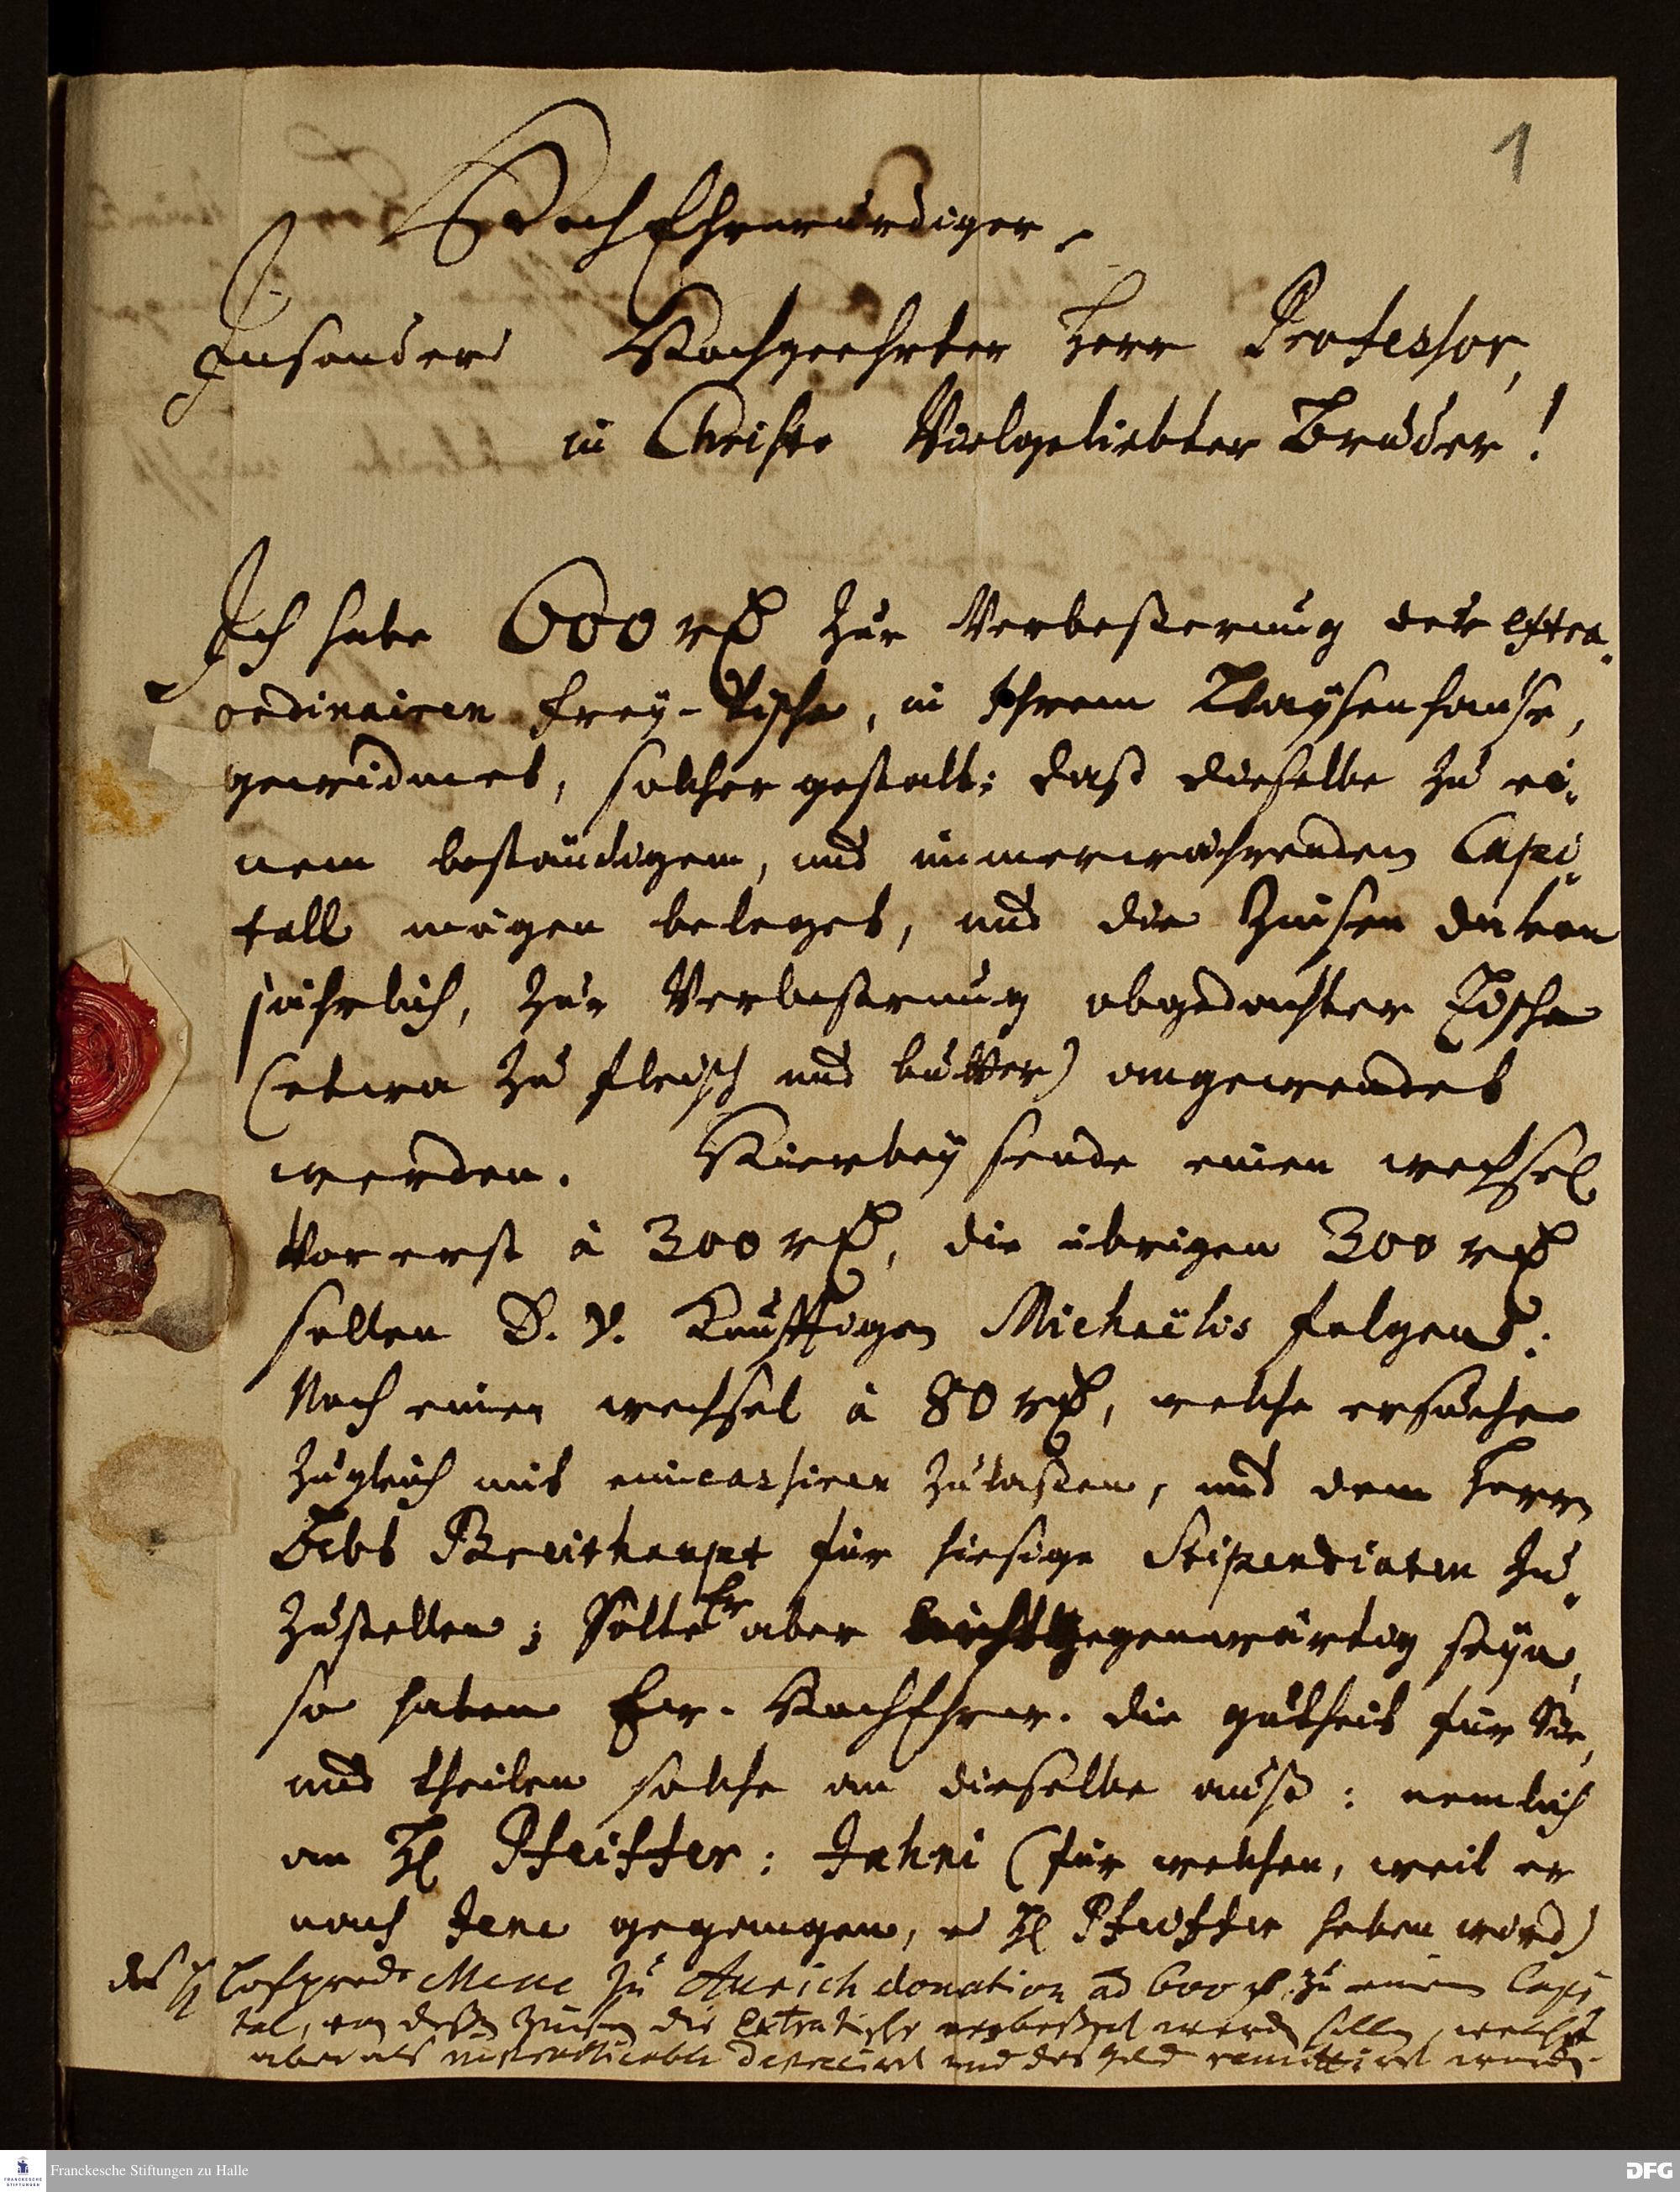 1
HochEhrwürdiger,
Insonders Hochgeehrter Herr Professor,
in Christo Vielgeliebter Bruder!
Ich habe 600 rth zur Verbeßerung der extra-
ordinairen Frey-Tische, in Ihrem Waysenhause,
gewidmet, solcher gestalt: daß dieselbe zu ei-
nem beständigem, und immerwährenden Capi-
tall mögen beleget, und die Zinsen davon
jährlich, zur Verbeßerung obgedachter Tische
(etwa zu fleisch und butter) angewendet
werden. Hierbey sende einen wechsel
Vorerst à 300 rth, die übrigen 300 rth
sollen D. V. Künfftigen Michaëlis folgen.
Noch einen wechsel à 80 rth, welche ersuche
zugleich mit eincassiren zulaßen, und dem Herrn
Abt Breithaupt für hiesige Stipendiaten zu-
zustellen; Solte Er aber nicht gegenwärtig seyn,
so haben Ew. HochEhrw. die gütheit für Sie,
und theilen solche an dieselbe auß: nemlich
an H. Pfeiffer: Jahni (für welchen, weil er
nach Jena gegangen, es H. Pfeiffer heben wird)
des H. Hofpred. Mene zu Aurich donation ad 600 rth. zu einem Capi
tal, von deßen Zinsen die Extratische verbeßert werden sollen, welches
aber als und das geld remittirt worden.
Franckesche Stiftungen zu Halle
FRANCKESCHE STIFTUNGEN
DFG